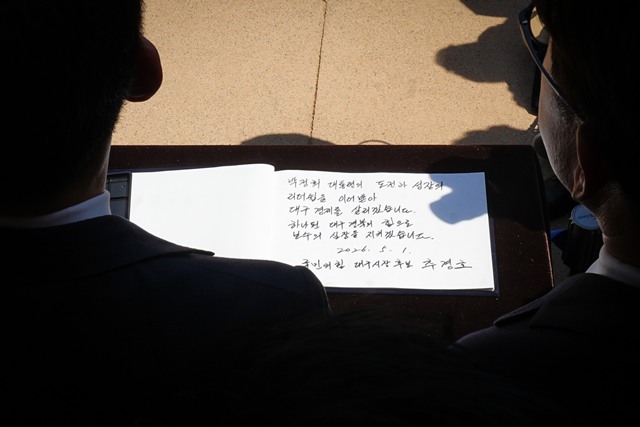 박정희 대통령의 도전과 성장의
리더십을 이어받아
대구 경제를 살리겠습니다.
하나된 대구 경북의 힘으로
보수의 심장을 지키겠습니다.
2026. 5. 1.
국민의힘 대구시장 후보 추경호